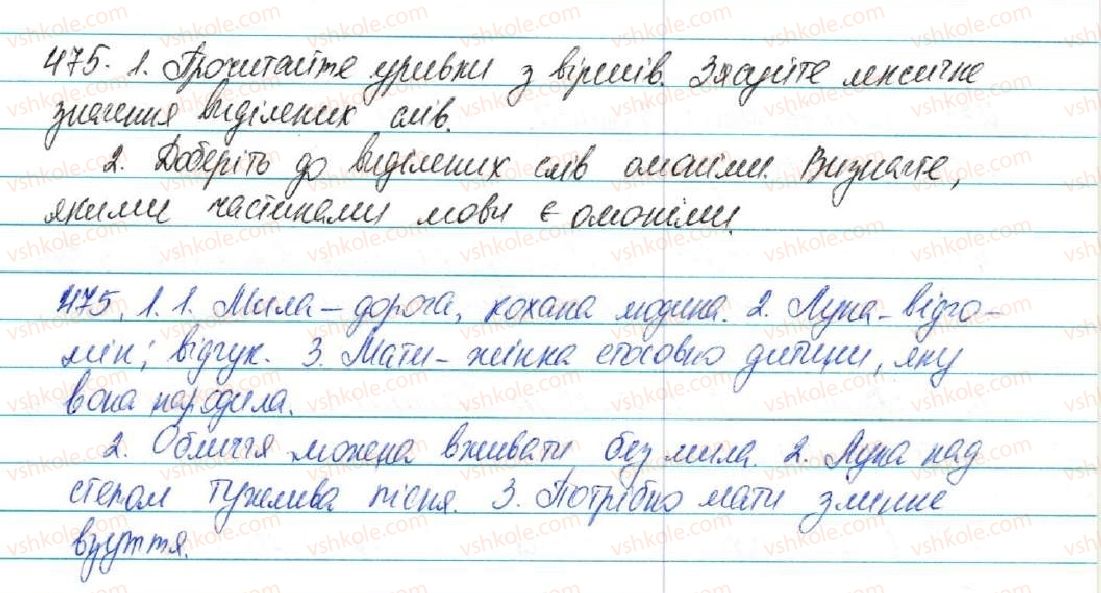 475. 1. Прочитайте уривки з віршів. З'ясуйте лексичне
значення виділених слів.
2. Доберіть до виділених слів омоніми. Визначте,
якими частинами мови є омоніми.
475. 1. 1. Мила – дорога, кохана людина. 2. Луна – відго-
мін; відгук. 3. Мати – жінка стосовно дитини, яку
вона народила.
2. Обличчя можна вживати без мила. 2. Луна над
степом тужлива пісня. 3. Потрібно мати змінне
взуття.